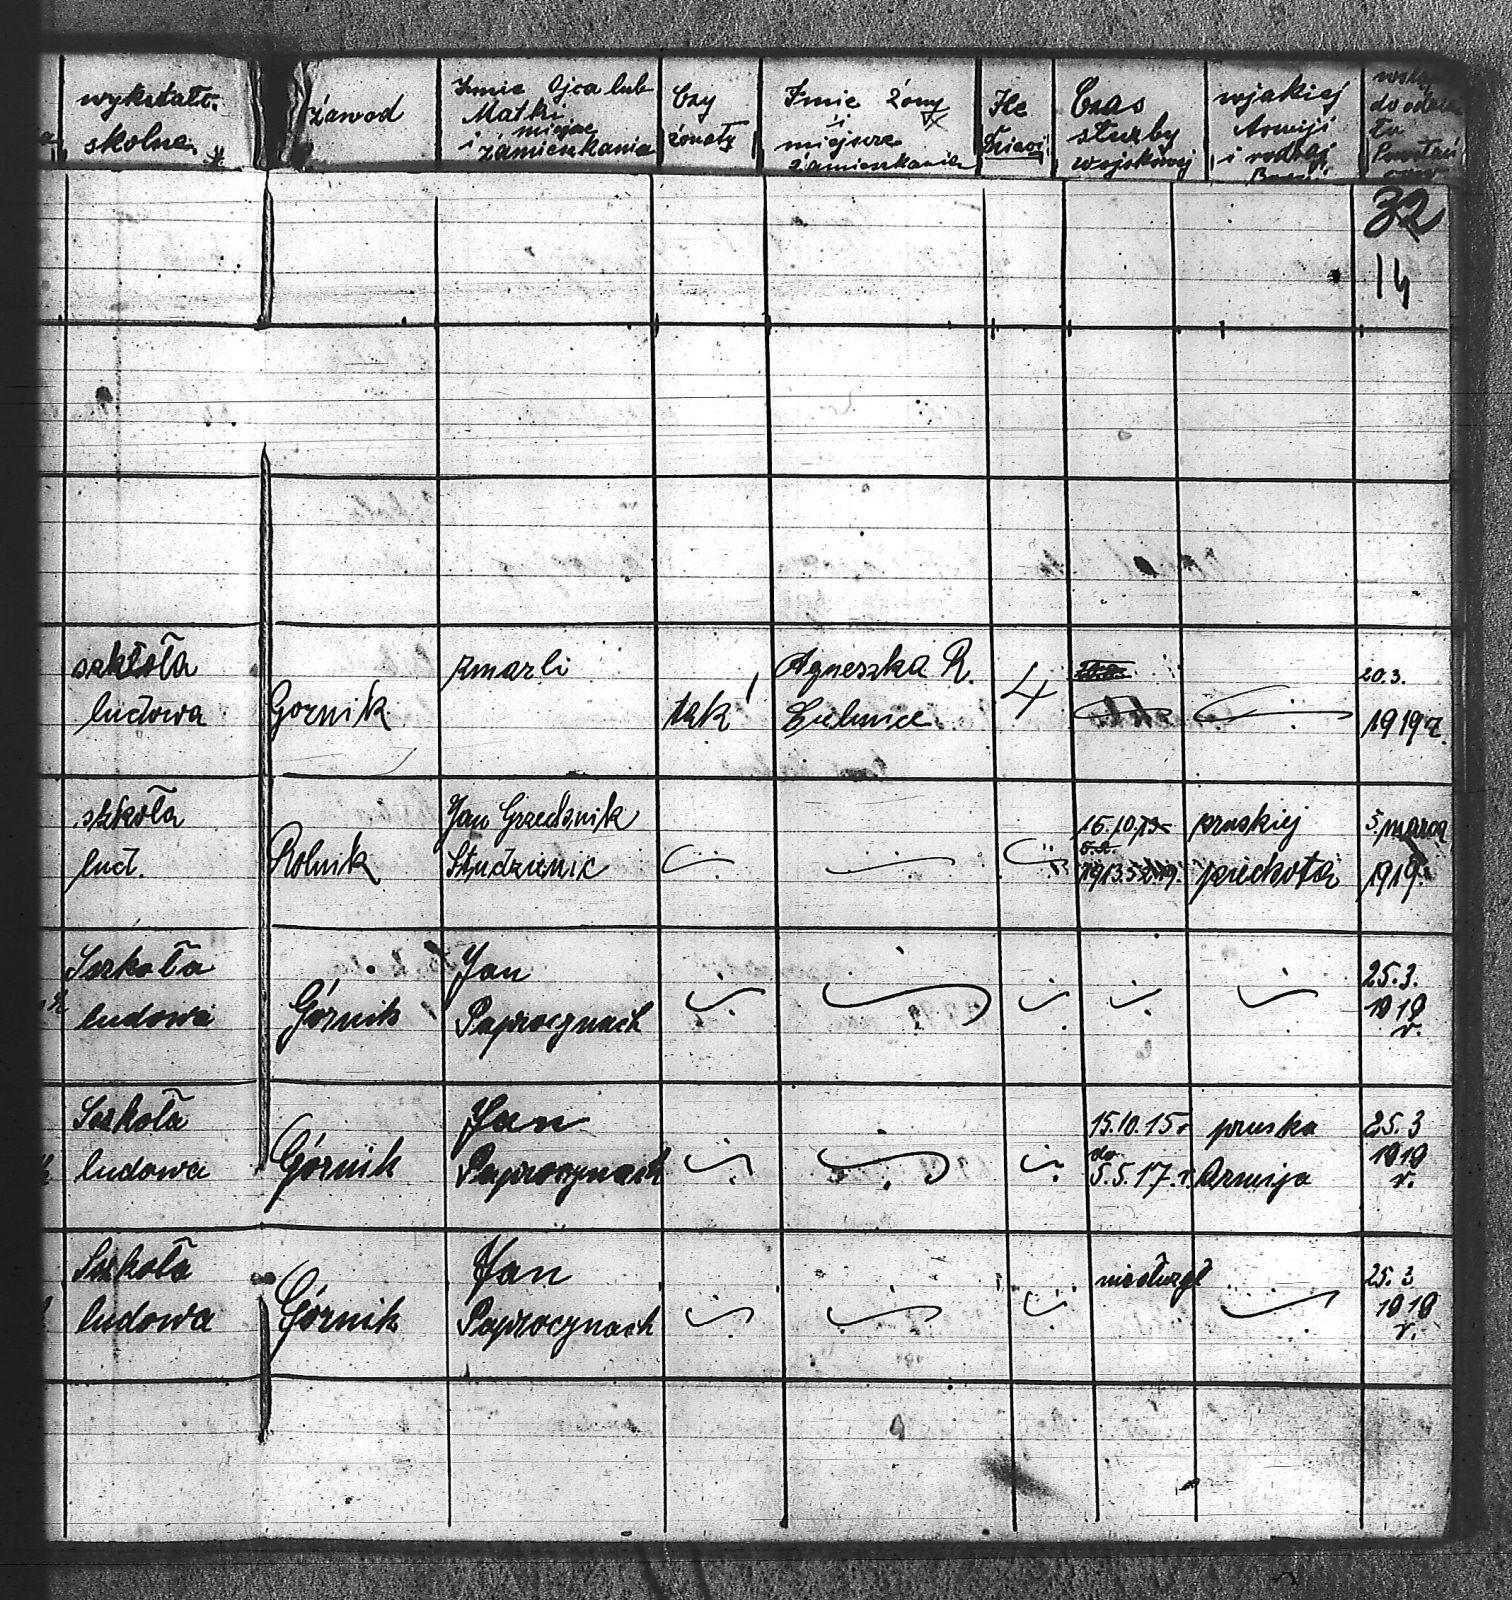 wykształc.
skolne
zawod
Imie Ojca lub
Matki
i miejsc
zamieszkania
Czy
żonaty
Imie żony
i
miejscze
zamieszkania
Ile
Dzieci
Czas
służby
wojskowej
wjakiej
Armiji
i rodzaj
Broni
do
32
14
szkoła
ludowa
Gornik
zmarli
tak
Agneszka R.
4
20.3.
1919 r.
szkoła
lud.
Rolnik
Jan Grzechnik
Studzienic
15.10.13
pruskiej
piechota
5. marca
1919.
Szkoła
ludowa
Górnik
Jan
Paprocynach
25.3.
1919
r.
Szkoła
ludowa
Górnik
Jan
Paprocynach
15.10.15 r
do
5.5.17. r.
pruska
Armija
25.3
1919
r.
Szkoła
ludowa
Górnik
Jan
Paprocynach
niesłużył
25.3
1919
r.